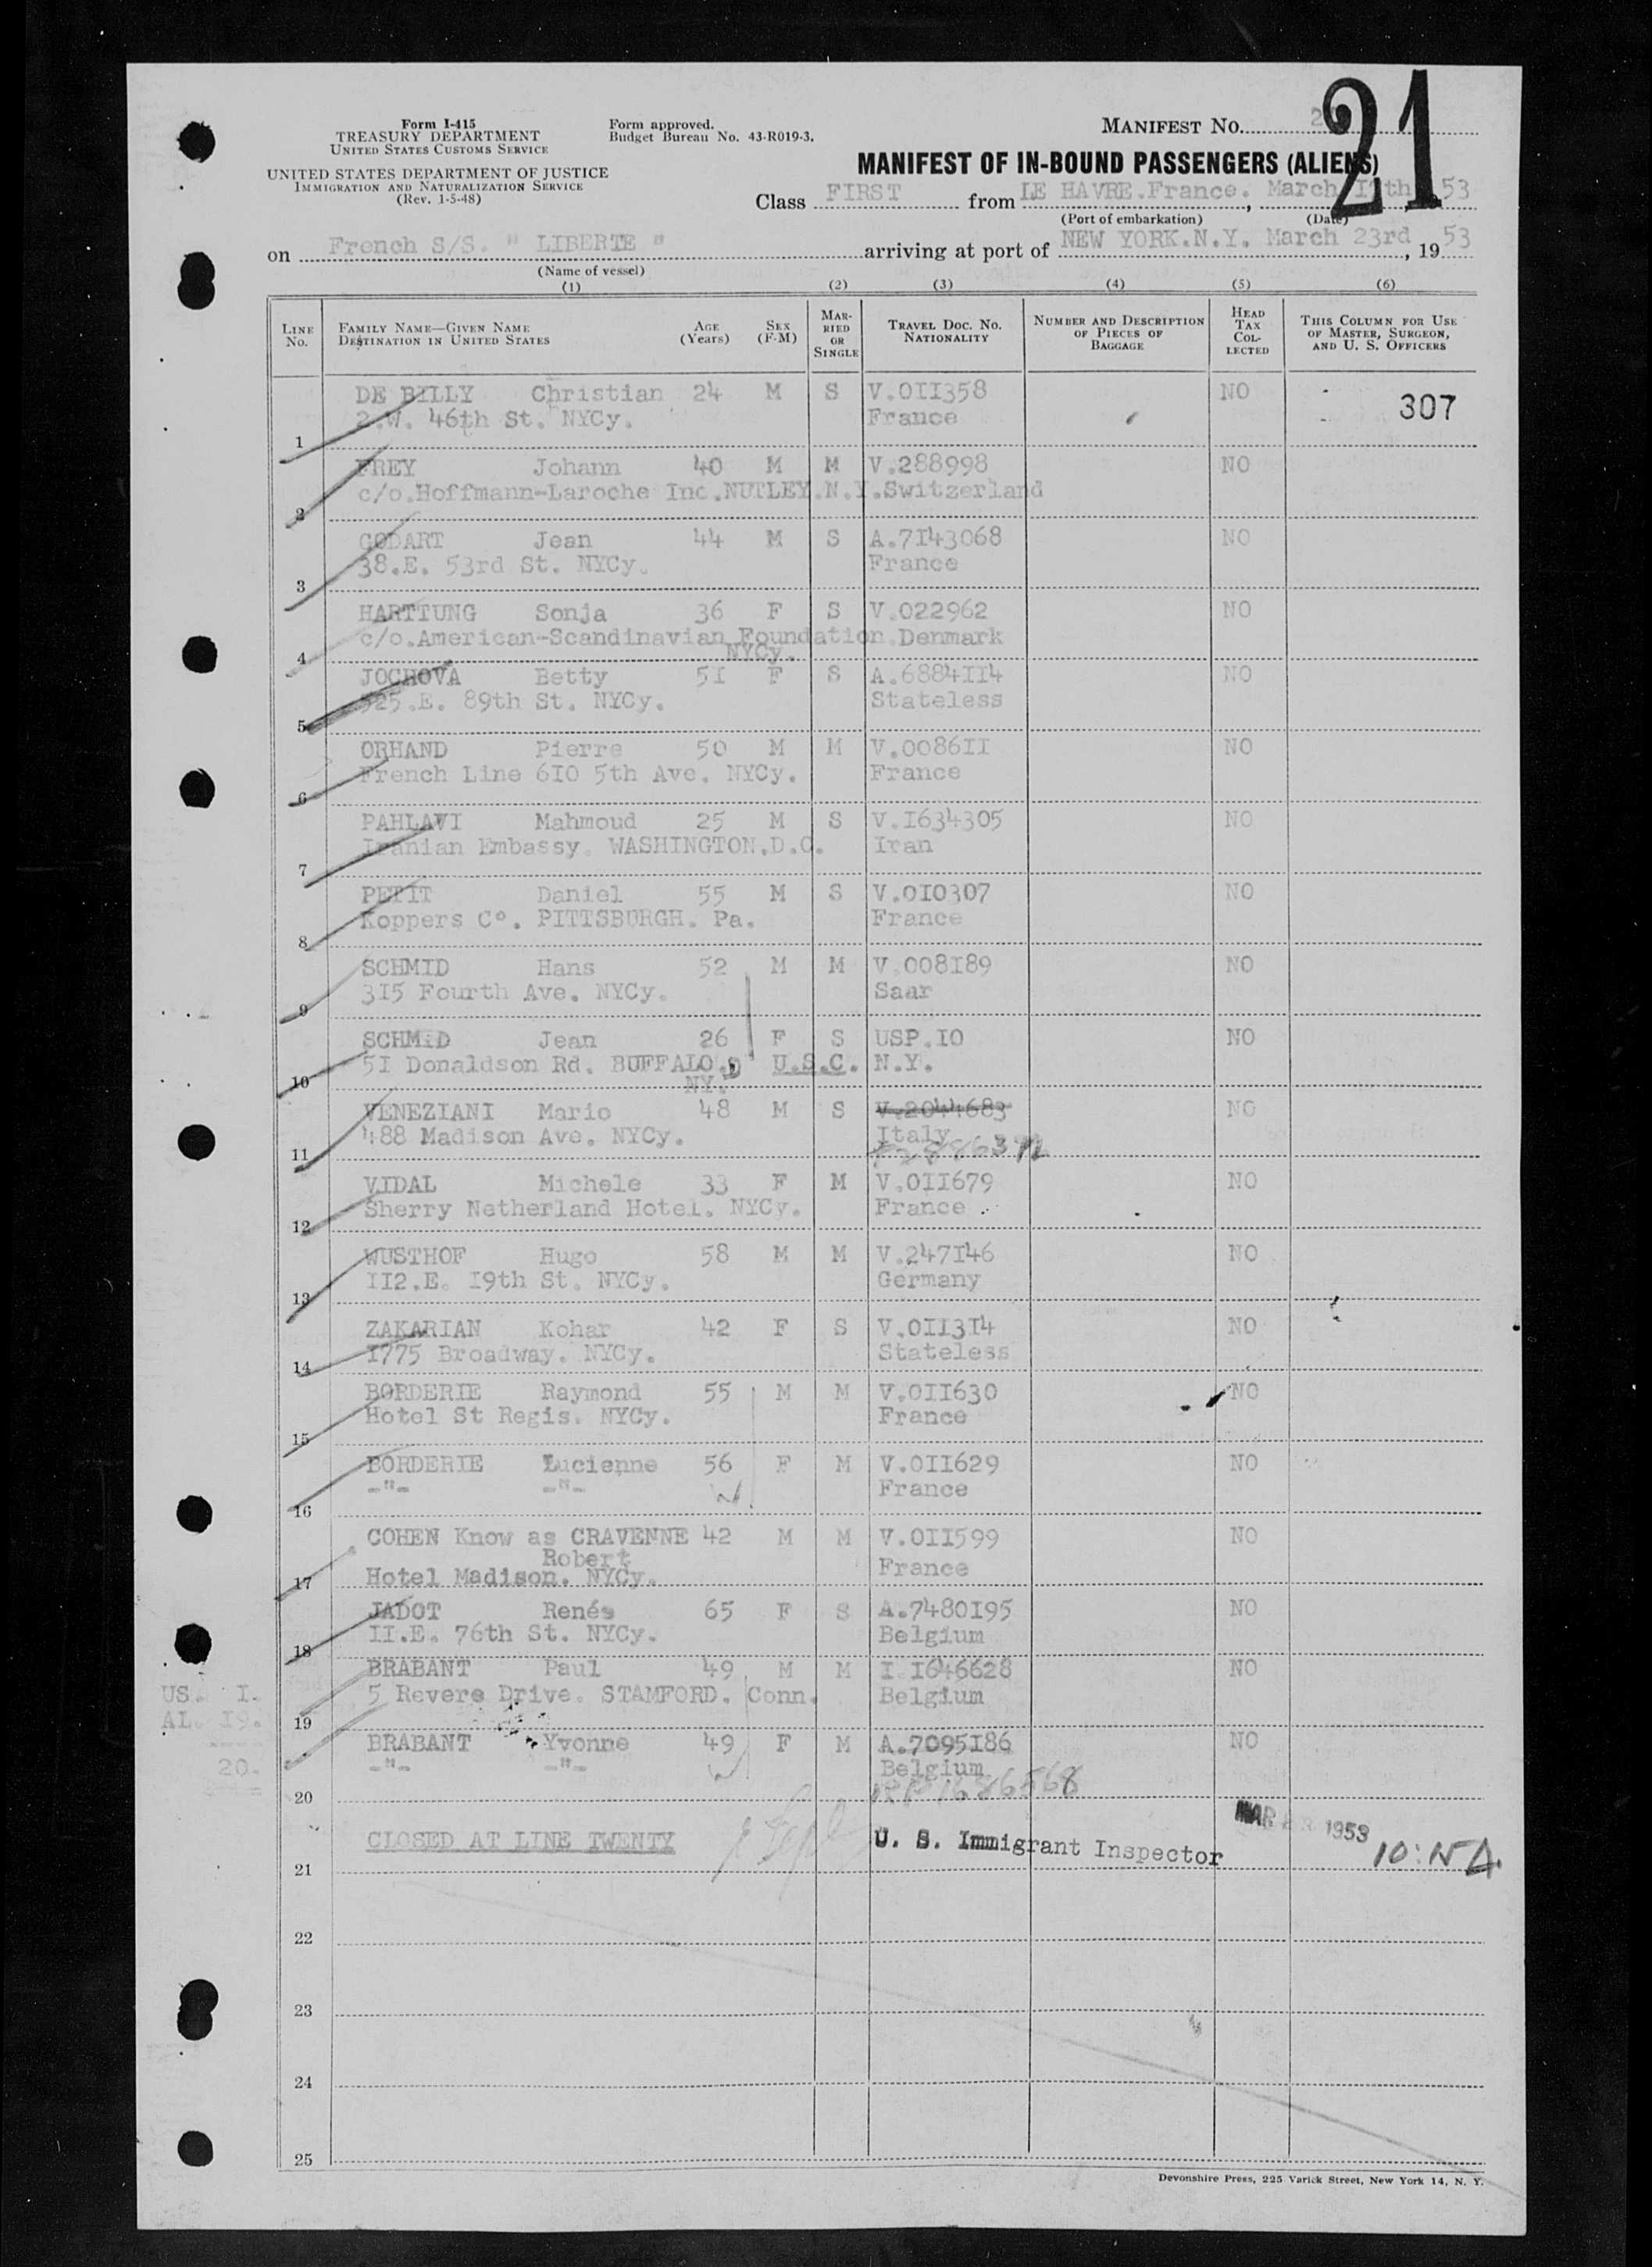 Form I-415
TREASURY DEPARTMENT
UNITED STATES CUSTOMS SERVICE
UNITED STATES DEPARTMENT OF JUSTICE
IMMIGRATION AND NATURALIZATION SERVICE
(Rev. 1-5-48)
Form approved.
Budget Bureau No. 43-R019-3.
MANIFEST NO.
21
MANIFEST OF IN-BOUND PASSENGERS (ALIENS)
Class FIRST from LE HAVRE.France. , March 53
(Port of embarkation) (Date)
on French S/S. " LIBERTE " arriving at port of NEW YORK.N.Y. March 23rd , 19 53
(Name of vessel)
(1) (2) (3) (4) (5) (6)
LINE No. FAMILY NAME—GIVEN NAME DESTINATION IN UNITED STATES AGE (Years) SEX (F-M) MARRIED OR SINGLE TRAVEL DOC. NO. NATIONALITY NUMBER AND DESCRIPTION OF PIECES OF BAGGAGE HEAD TAX COLLECTED THIS COLUMN FOR USE OF MASTER, SURGEON, AND U. S. OFFICERS
DE BILLY Christian 24 M S V.0II358 NO 307
1 2.W. 46th St. NYCy. France
FREY Johann 40 M M V.288998 NO
2 c/o.Hoffmann-Laroche Inc.NUTLEY.N.Y.Switzerland
GODART Jean 44 M S A.7I43068 NO
3 38.E. 53rd St. NYCy. France
HARTTUNG Sonja 36 F S V.022962 NO
c/o.American-Scandinavian Foundation Denmark
4 NYCy.
JOCHOVA Betty 5I F S A.6884II4 NO
5 525.E. 89th St. NYCy. Stateless
ORHAND Pierre 50 M M V.0086II NO
6 French Line 6I0 5th Ave. NYCy. France
PAHLAVI Mahmoud 25 M S V.I634305 NO
7 Iranian Embassy. WASHINGTON.D.C. Iran
PETIT Daniel 55 M S V.0I0307 NO
8 Koppers C°. PITTSBURGH. Pa. France
SCHMID Hans 52 M M V.008I89 NO
9 3I5 Fourth Ave. NYCy. Saar
SCHMID Jean 26 F S USP.I0 NO
5I Donaldson Rd. BUFFALO. U.S.C. N.Y.
10 NY.
VENEZIANI Mario 48 M S V.2044683 NO
11 488 Madison Ave. NYCy. Italy
VIDAL Michele 33 F M V.0II679 NO
12 Sherry Netherland Hotel. NYCy. France
WUSTHOF Hugo 58 M M V.247I46 NO
13 II2.E. I9th St. NYCy. Germany
ZAKARIAN Kohar 42 F S V.0II3I4 NO
14 I775 Broadway. NYCy. Stateless
BORDERIE Raymond 55 M M V.0II630 NO
15 Hotel St Regis. NYCy. France
BORDERIE Lucienne 56 F M V.0II629 NO
16 -"- -"- France
COHEN Know as CRAVENNE 42 M M V.0II599 NO
Robert France
17 Hotel Madison. NYCy.
JADOT Renée 65 F S A.7480I95 NO
18 II.E. 76th St. NYCy. Belgium
BRABANT Paul 49 M M I I646628 NO
19 5 Revere Drive. STAMFORD. Conn. Belgium
US. I.
AL. I9.
20.
BRABANT Yvonne 49 F M A.7095I86 NO
20 -"- -"- Belgium
1686568
21 CLOSED AT LINE TWENTY U. S. Immigrant Inspector MAR 1953 10:15 A.
22
23
24
25
Devonshire Press, 225 Varick Street, New York 14, N. Y.